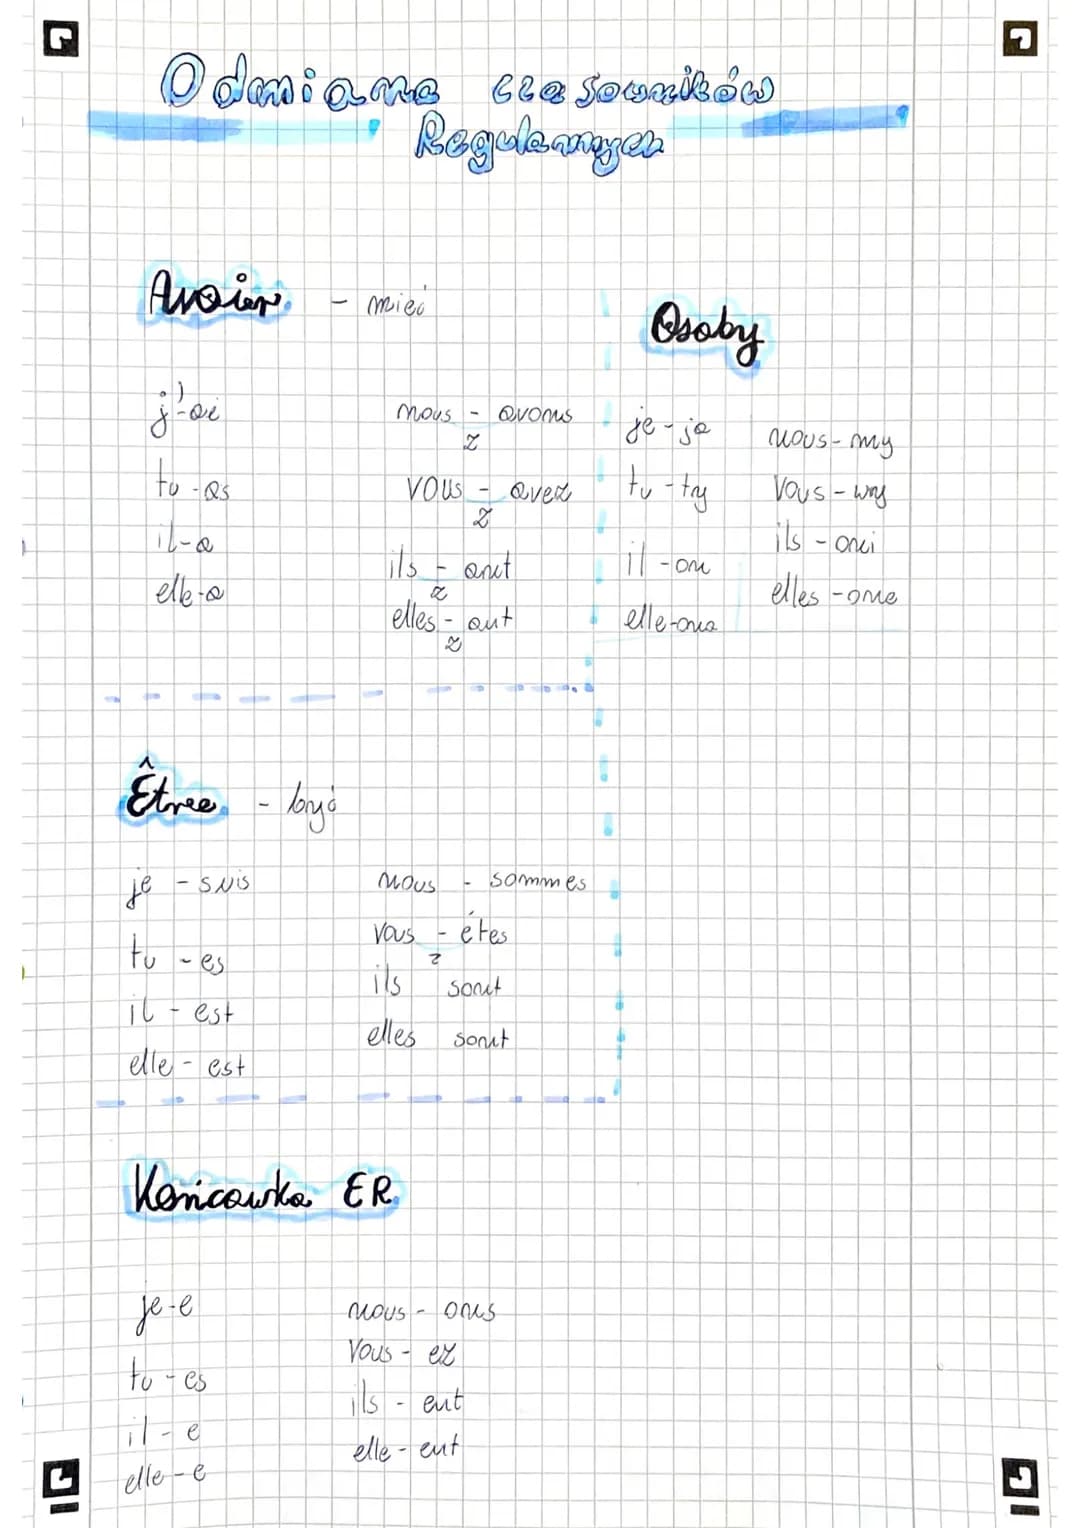 Odmiana czasowników
Regularnych
Avoier - mieć
j'-ai
tu - as
il - a
elle - a
nous - avons
z
vous - avez
z
ils - ont
z
elles - ont
z
Osoby
je - ja
tu - ty
il - on
elle - ona
nous - my
vous - wy
ils - oni
elles - one
Êtree - być
je - suis
tu - es
il - est
elle - est
nous - sommes
vous - étes
z
ils sont
elles sont
Końcówka ER
je - e
tu - es
il - e
elle - e
nous - ons
vous - ez
ils - ent
elle - ent